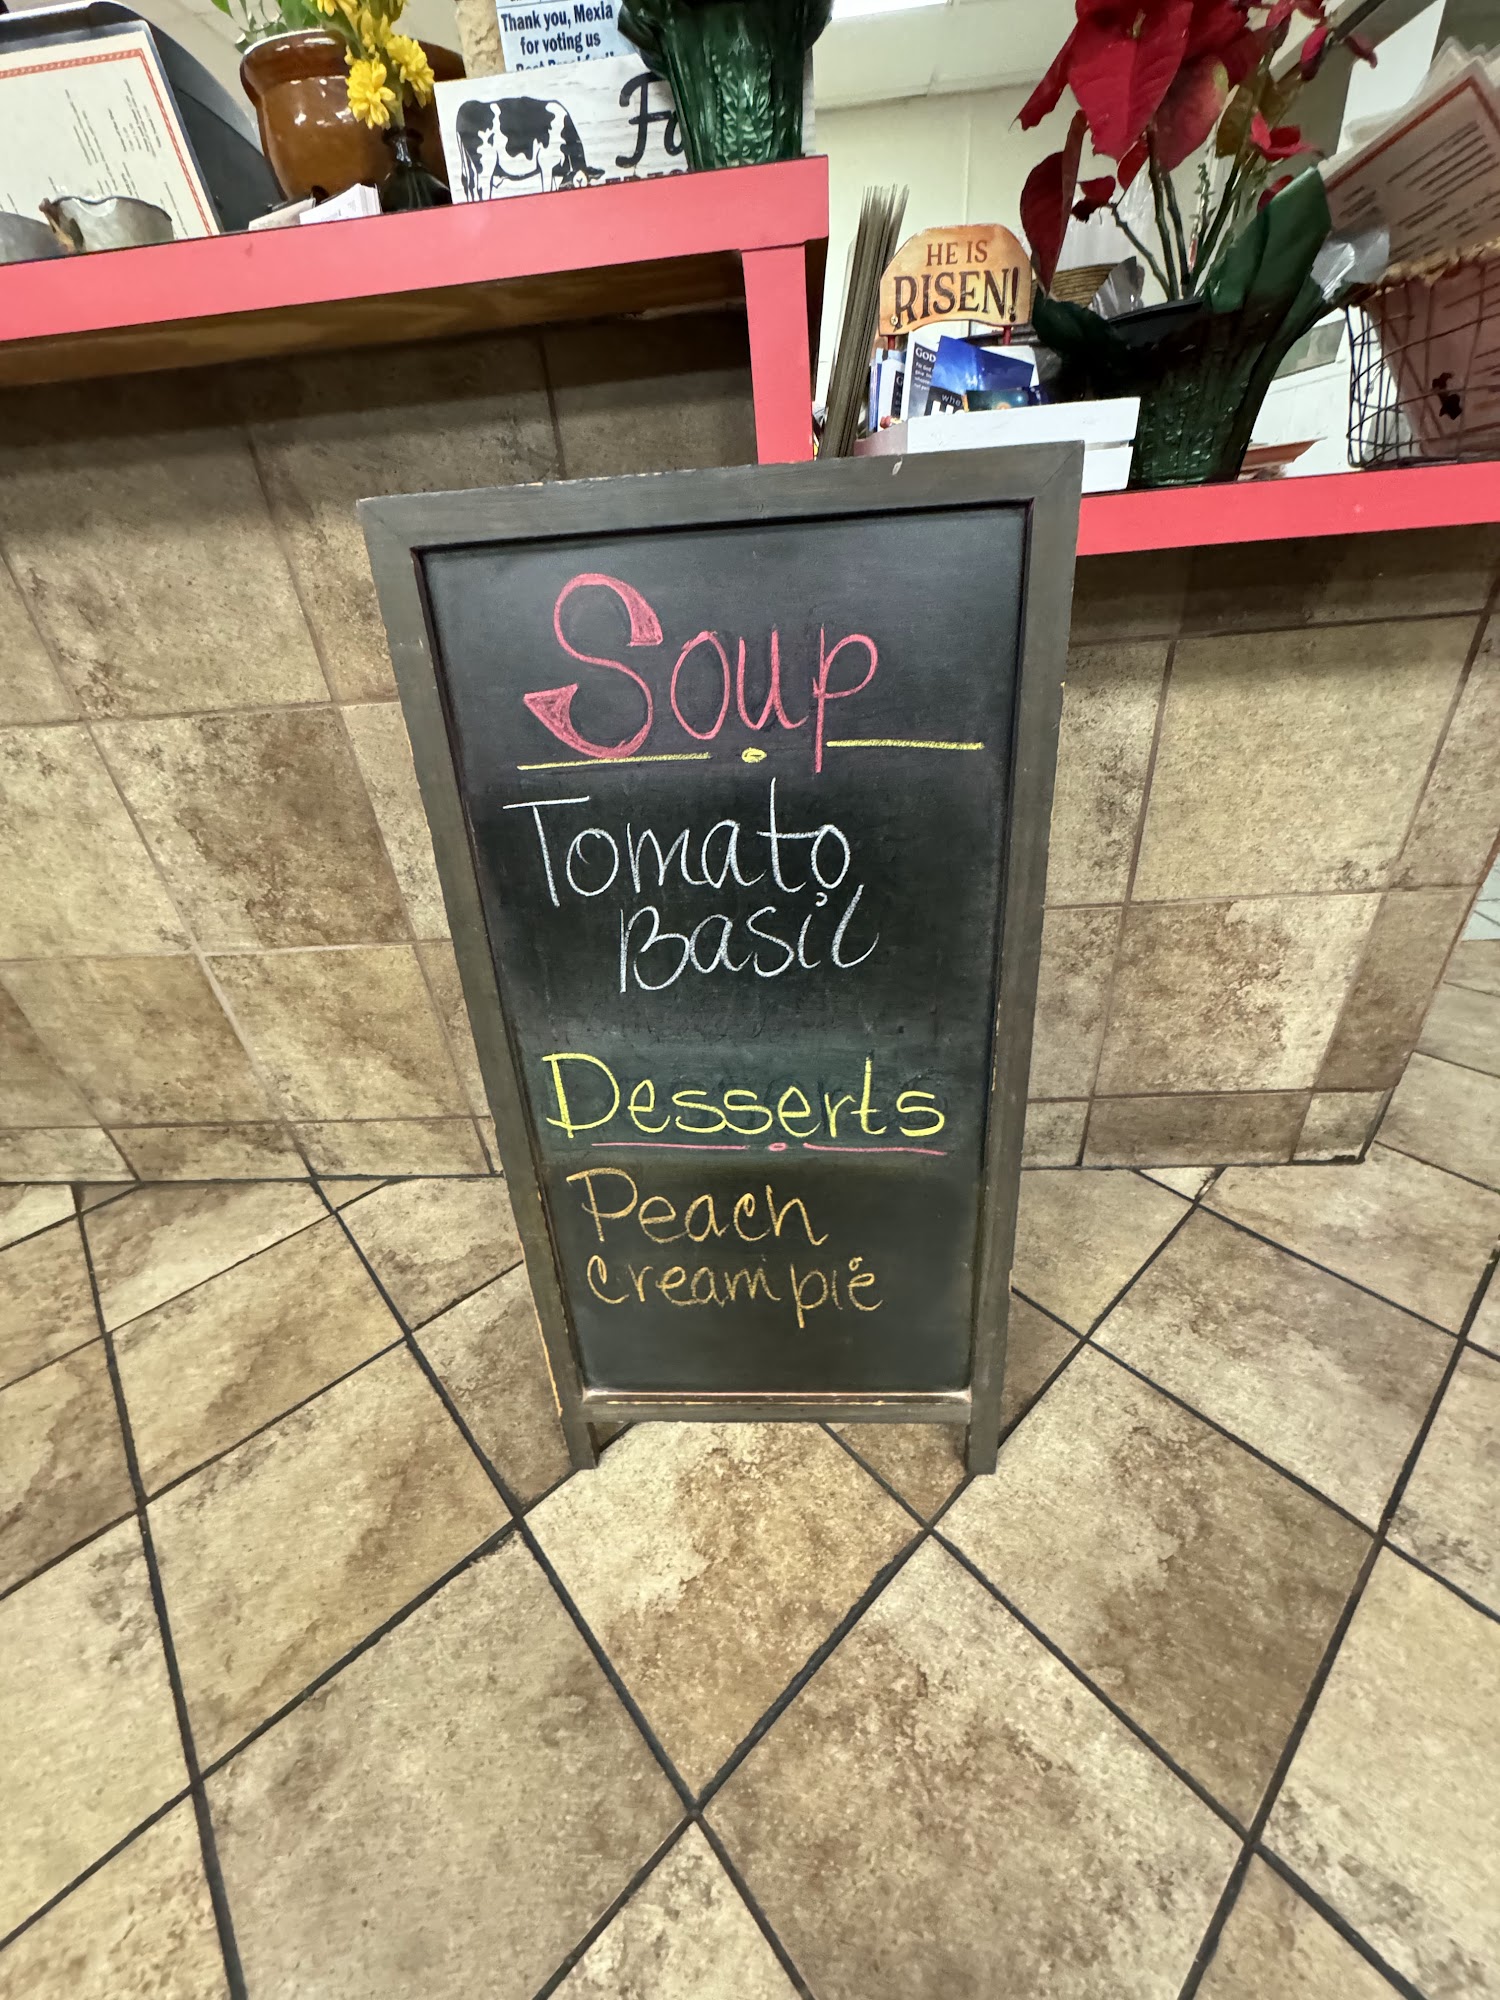 Thank you, Mexia
for voting us
HE IS
RISEN!
GOD
Soup
Tomato
Basil
Desserts
Peach
cream pie